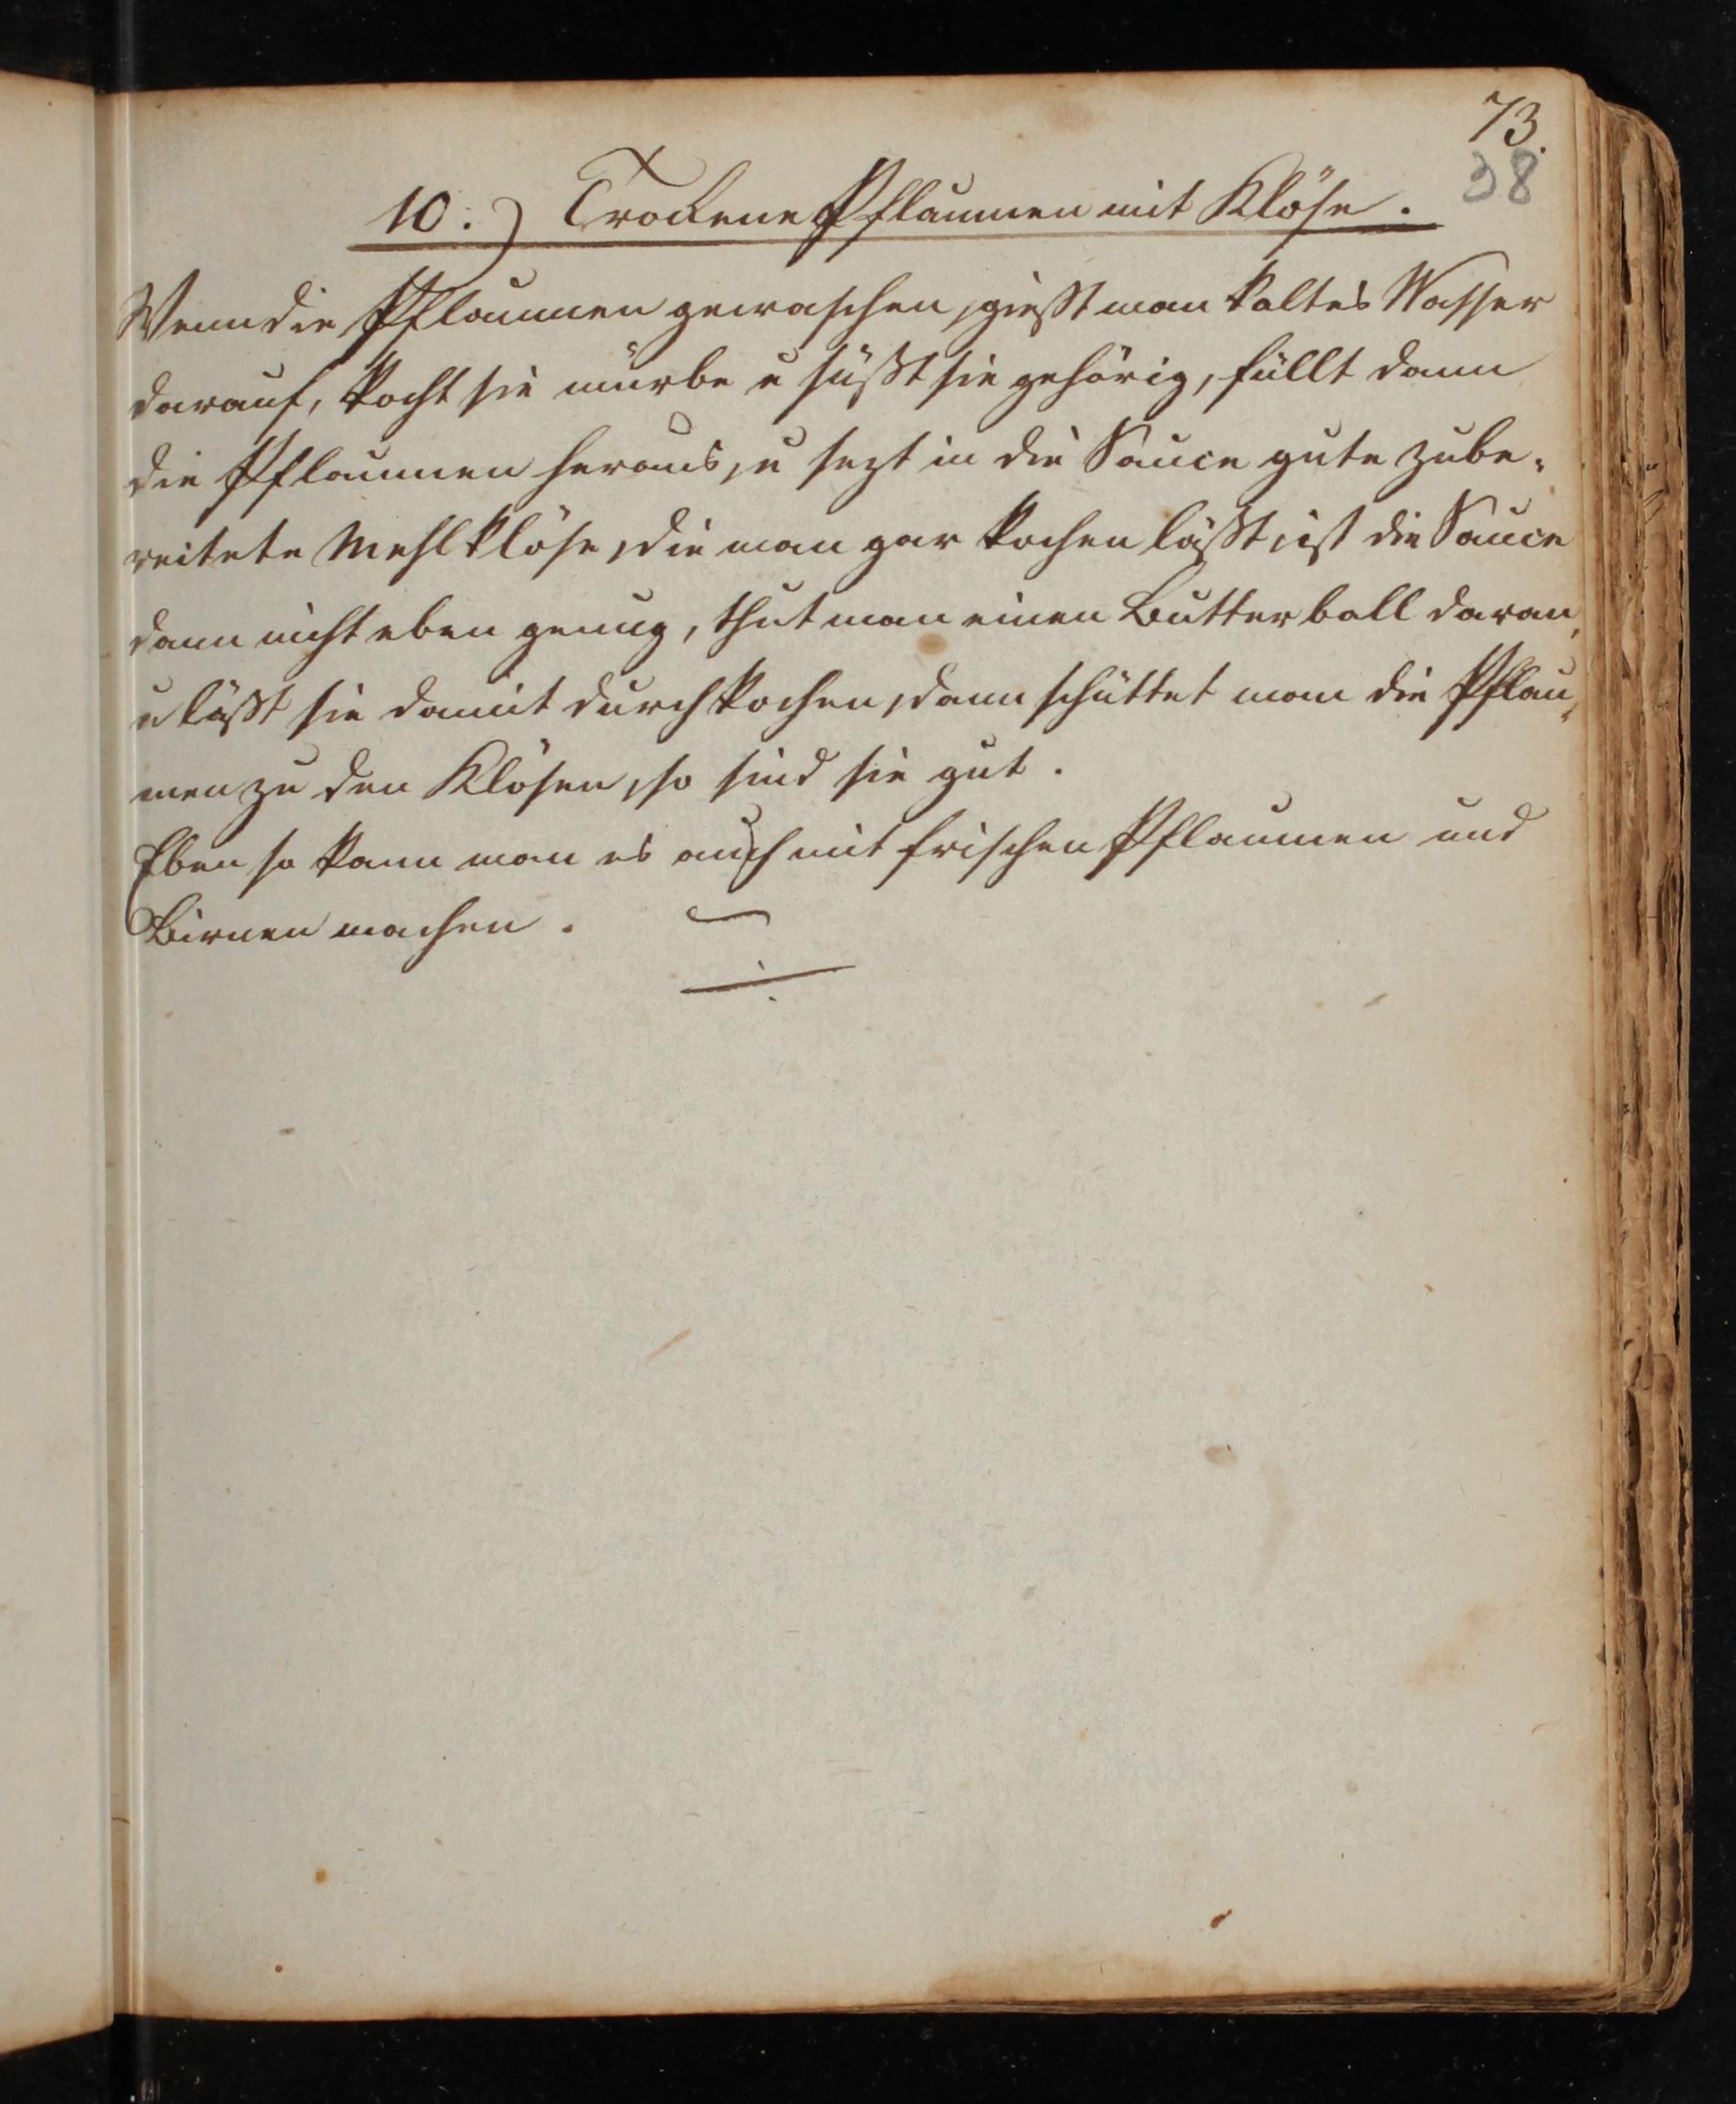 73.
38
10.) Trockene Pflaumen mit Klöse.
Wenn die Pflaumen gewaschen, gießt man kaltes Wasser
darauf, kocht sie mürbe u süßt sie gehörig, füllt dann
die Pflaumen heraus, u sezt in die Sauce gute zube-
reitete Mehlklöse, die man gar kochen läßt, ist die Sauce
dann nicht eben genug, thut man einen Butterball daran,
u läßt sie damit durchkochen, dann schüttet man die Pflau-
men zu den Klösen, so sind sie gut.
Eben so kann man es auch mit frischen Pflaumen und
Birnen machen.